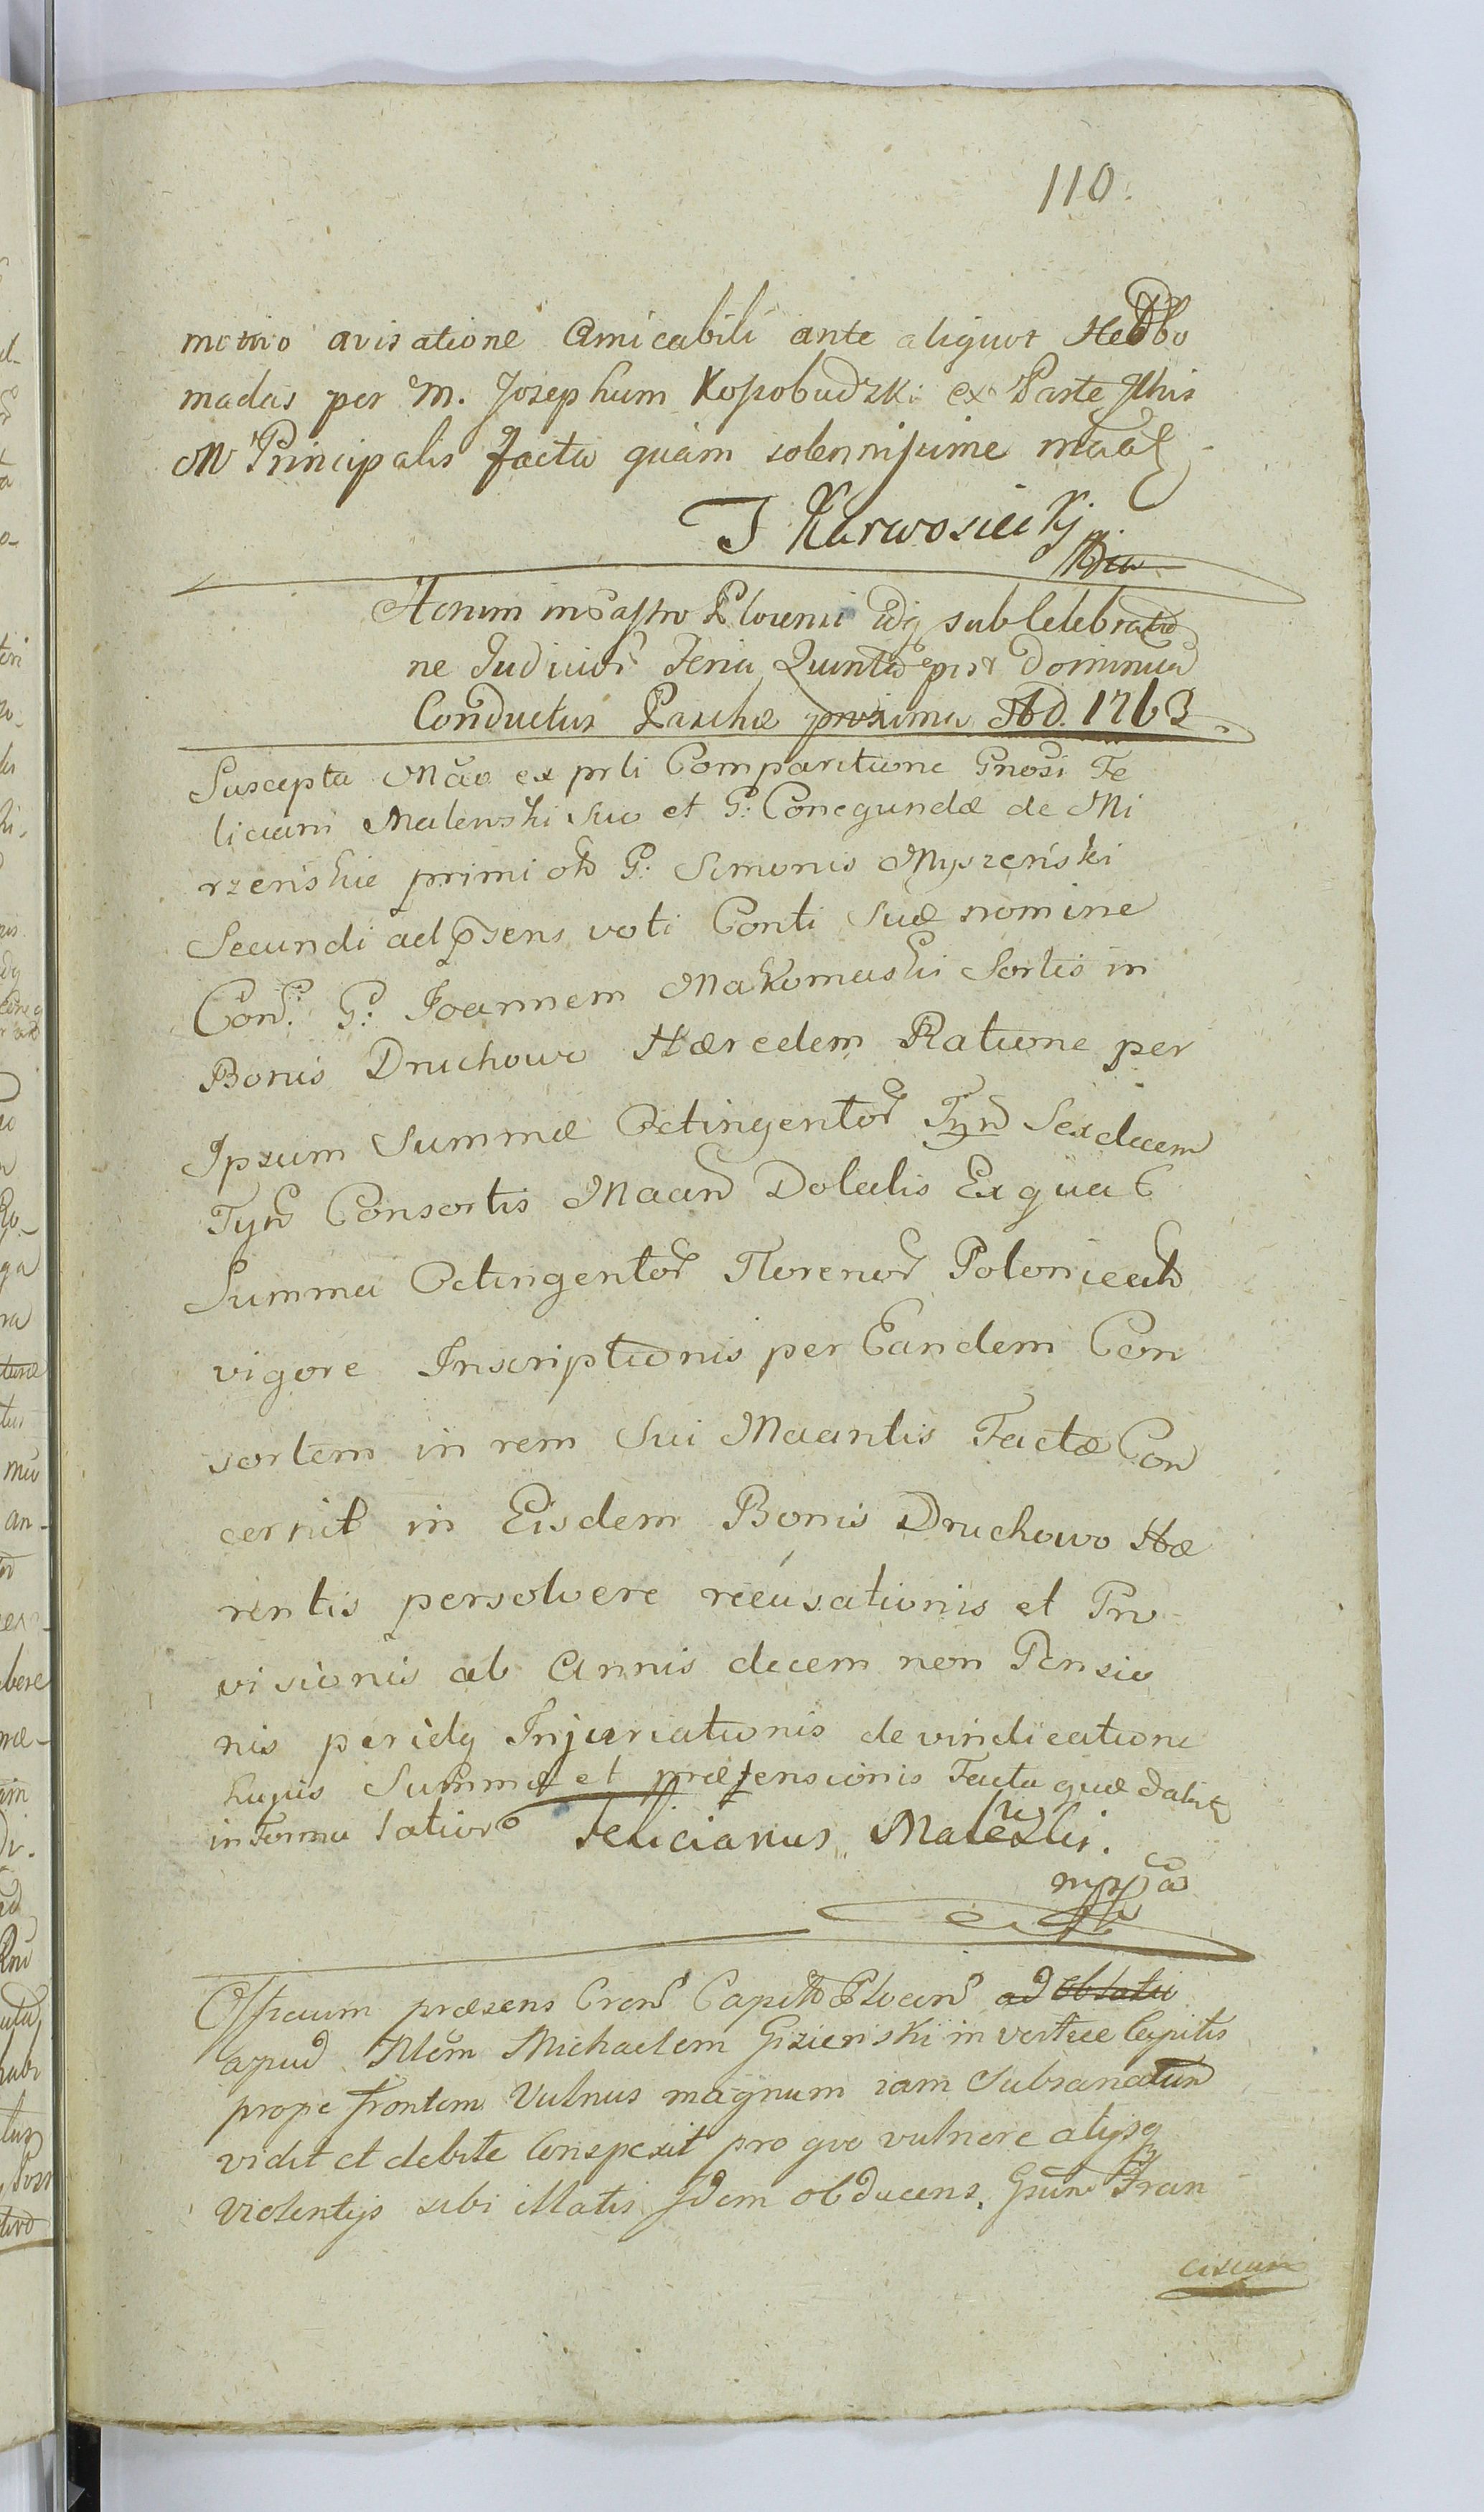 110.
motivo avisatione Amicabili ante aliquot Hebdo
madas per M. Josephum Kossobudzki ex Parte Ilhis
M Principalis facta quam solennissime
J Karwosiecki
Actum in Castro Plocensi idq sub Celebratio
ne Judicior Feria Quinta post Dominica
Conductus Paschæ proxima A D. 1763
Suscepta Mão ex prli Comparitione Gnosi Fe
liciani Malewski Suo et G: Conegundæ de Mi
rzeńskie primi oh G: Simonis Myszeński
Secundi ad p̄sens voti Conti Suæ nomine
Con: G: Joannem Makomaski Sortis in
Bonis Druchowo Hæredem Ratione per
Ipsum Summæ Octingentor Tyn Sexdecem
Tyn Consortis Maan Dotalis Ex qua
Summa Octingentor Florenor Polonical
vigore Inscriptionis per Eandem Con
sortem in rem Sui Maantis Factæ Con
cernit in Eisdem Bonis Druchowo Hæ
rentis persolvere recusationis et Pro
visionis ab Annis decem non Pensio
nis peridq Injuriationis de vindicatione
hujus Summæ et prætensionis Facta quæ dabit
in Forma latiori Felicianus Malewski.
mpp
Officium præsens Cren Capit Plocen ad oblatio
apud Nlem Michaelem Gizieński in vertice Capitis
prope frontem Vulnus magnum iam Subsanatum
vidit et debite Conspexit pro quo vulnere alijsq
violentijs sibi illatis Idem obducens Gsum Fran
ciscum